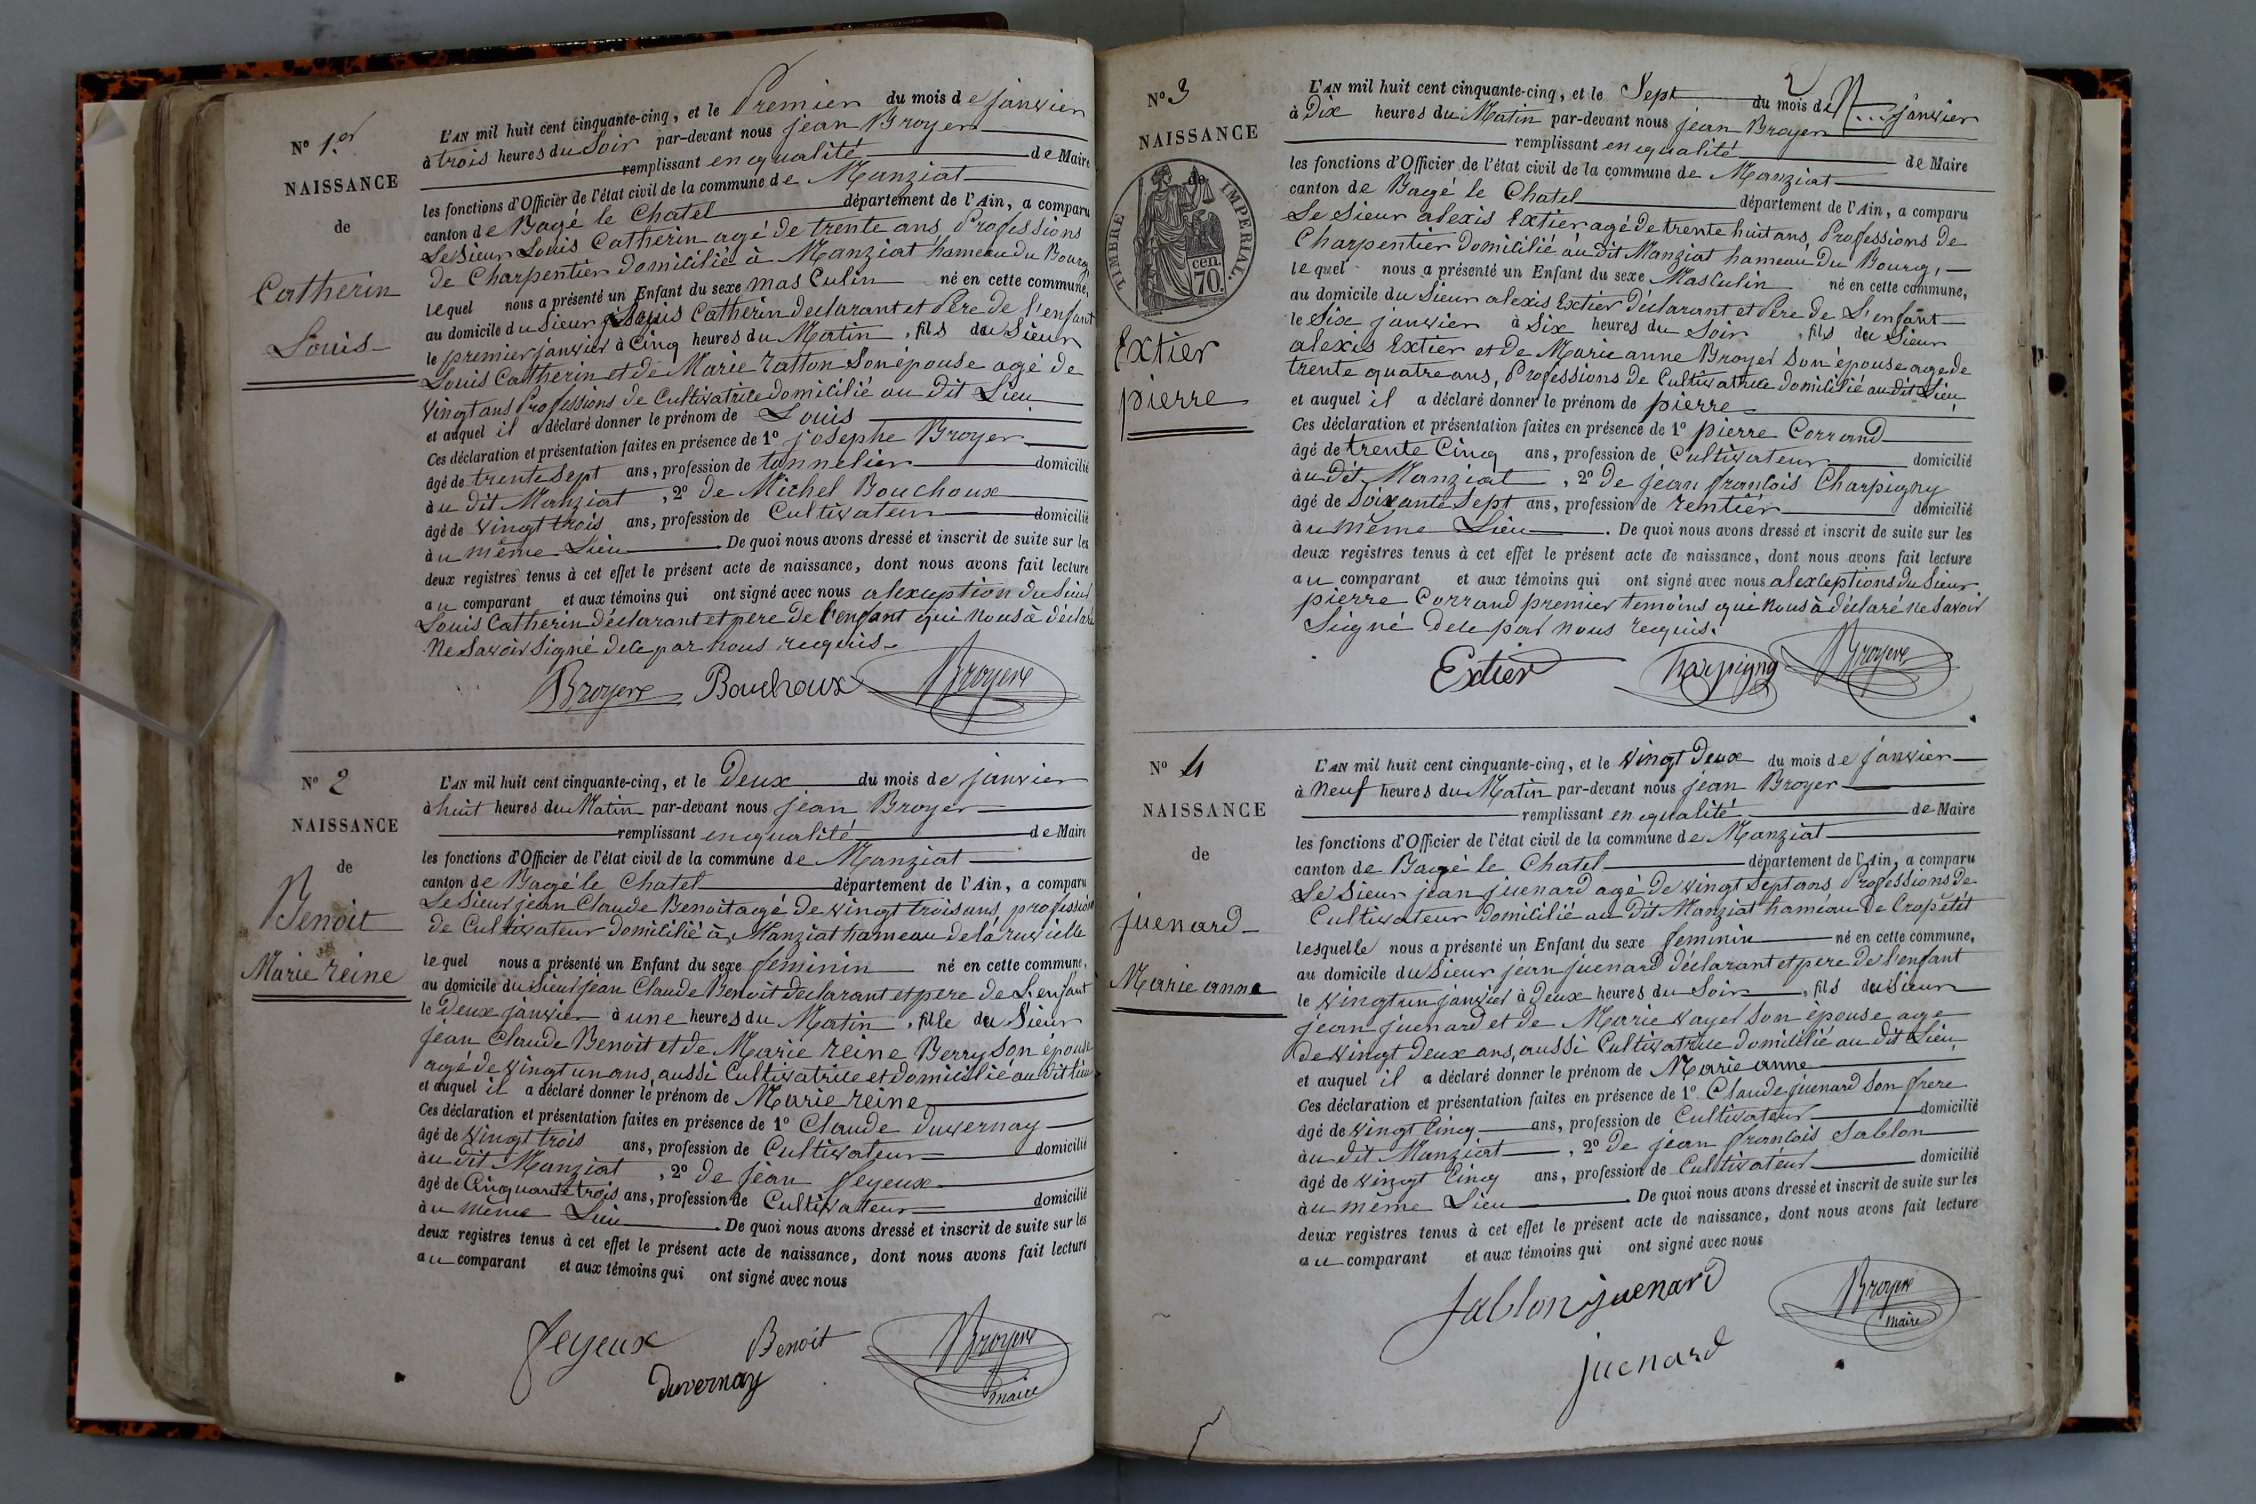 N° 1.er
NAISSANCE
de
Catherin
Louis
L'AN mil huit cent cinquante-cinq, et le Premier du mois de janvier
à trois heures du Soir par-devant nous jean Broyer
remplissant en qualité de Maire
les fonctions d'Officier de l'état civil de la commune de Manziat
canton de Bagé le Chatel département de l'Ain, a comparu
Le Sieur Louis Catherin agé de trente ans Professions
de Charpentier domicilié à Manziat hameau du Bourg
lequel nous a présenté un Enfant du sexe masculin né en cette commune,
au domicile du Sieur Louis Catherin declarant et Père de l'enfant
le premier janvier à Cinq heures du Matin, fils du Sieur
Louis Catherin et de Marie Ratton Son épouse agé de
Vingt ans Professions de Cultivatrice domicilié au dit Lieu
et auquel il a déclaré donner le prénom de Louis
Ces déclaration et présentation faites en présence de 1° josephe Broyer
âgé de trente sept ans, profession de tonnelier domicilié
à u dit Manziat, 2° de Michel Bouchoux
âgé de vingt trois ans, profession de Cultivateur domicilié
à u même Lieu. De quoi nous avons dressé et inscrit de suite sur les
deux registres tenus à cet effet le présent acte de naissance, dont nous avons fait lecture
au comparant et aux témoins qui ont signé avec nous alexception du Sieur
Louis Catherin déclarant et pere de l'enfant qui Nous à déclaré
Ne Savoir Signé dece par nous requis
Broyer Bouchoux Broyer
N° 2
NAISSANCE
de
Benoit
Marie reine
L'AN mil huit cent cinquante-cinq, et le Deux du mois de janvier
à huit heures du Matin par-devant nous jean Broyer
remplissant en qualité de Maire
les fonctions d'Officier de l'état civil de la commune de Manziat
canton de Bagé le Chatel département de l'Ain, a comparu
Le Sieur jean Claude Benoit agé de vingt trois ans profession
de Cultivateur domicilié à Manziat hameau de la
lequel nous a présenté un Enfant du sexe feminin né en cette commune,
au domicile du Sieur jean Claude Benoit declarant et pere de L'enfant
le Deux janvier à une heures du Matin, fille du Sieur
jean Claude Benoit et de Marie reine Berry son épouse
agé de vingt un ans, aussi Cultivatrice et domicilié au dit lieu
et auquel il a déclaré donner le prénom de Marie reine
Ces déclaration et présentation faites en présence de 1° Claude Duvernay
âgé de vingt trois ans, profession de Cultivateur domicilié
à u dit Manziat, 2° de jean feyeux
âgé de Cinquante trois ans, profession de Cultivateur domicilié
à u même Lieu. De quoi nous avons dressé et inscrit de suite sur les
deux registres tenus à cet effet le présent acte de naissance, dont nous avons fait lecture
au comparant et aux témoins qui ont signé avec nous
feyeux Benoit Broyer
Duvernay maire
2
N° 3
NAISSANCE
de
TIMBRE IMPERIAL.
70. cen.
Extier
pierre
L'AN mil huit cent cinquante-cinq, et le Sept du mois de janvier
à Dix heures du Matin par-devant nous jean Broyer
remplissant en qualité de Maire
les fonctions d'Officier de l'état civil de la commune de Manziat
canton de Bagé le Chatel département de l'Ain, a comparu
Le Sieur alexis Extier agé de trente huit ans, Professions de
Charpentier domicilié àu dit Manziat hameau Du Bourg,
lequel nous a présenté un Enfant du sexe Masculin né en cette commune,
au domicile du Sieur alexis Extier Déclarant et Père de L'enfant
le Six janvier à Six heures du Soir, fils du Sieur
alexis Extier et De Marie anne Broyer Son épouse age de
trente quatre ans, Professions de Cultivatrice domicilié au dit Lieu,
et auquel il a déclaré donner le prénom de pierre
Ces déclaration et présentation faites en présence de 1° pierre Corrand
âgé de trente Cinq ans, profession de Cultivateur domicilié
à u dit Manziat, 2° De jean francois Charpigny
âgé de Soixante Sept ans, profession de rentier domicilié
à u même Lieu. De quoi nous avons dressé et inscrit de suite sur les
deux registres tenus à cet effet le présent acte de naissance, dont nous avons fait lecture
au comparant et aux témoins qui ont signé avec nous alexceptions du Sieur
pierre Corrand premier temoins qui Nous à déclaré ne Savoir
Signé dece par Nous requis.
Extier Charpigny Broyer
N° 4
NAISSANCE
de
juenard
Marie anne
L'AN mil huit cent cinquante-cinq, et le vingt Deux du mois de janvier
à Neuf heures du Matin par-devant nous jean Broyer
remplissant en qualité de Maire
les fonctions d'Officier de l'état civil de la commune de Manziat
canton de Bagé le Chatel département de l'Ain, a comparu
Le Sieur jean juenard agé de vingt Sept ans Professions de
Cultivateur domicilié au Dit Manziat haméau De Cropétét
lesquelle nous a présenté un Enfant du sexe feminin né en cette commune,
au domicile du Sieur jean juenard déclarant et pere de l'enfant
le vingt un janvier à Deux heures du Soir, fils du Sieur
jean juenard et de Marie vayer Son épouse age
de vingt Deux ans, aussi Cultivatrice domicilié au dit Lieu,
et auquel il a déclaré donner le prénom de Marie anne
Ces déclaration et présentation faites en présence de 1° Claude juenard Son frere
âgé de vingt Cinq ans, profession de Cultivateur domicilié
à u dit Manziat, 2° De jean francois Sablon
âgé de vingt Cinq ans, profession de Cultivateur domicilié
à u même Lieu. De quoi nous avons dressé et inscrit de suite sur les
deux registres tenus à cet effet le présent acte de naissance, dont nous avons fait lecture
au comparant et aux témoins qui ont signé avec nous
Sablon juenard Broyer
maire
juenard